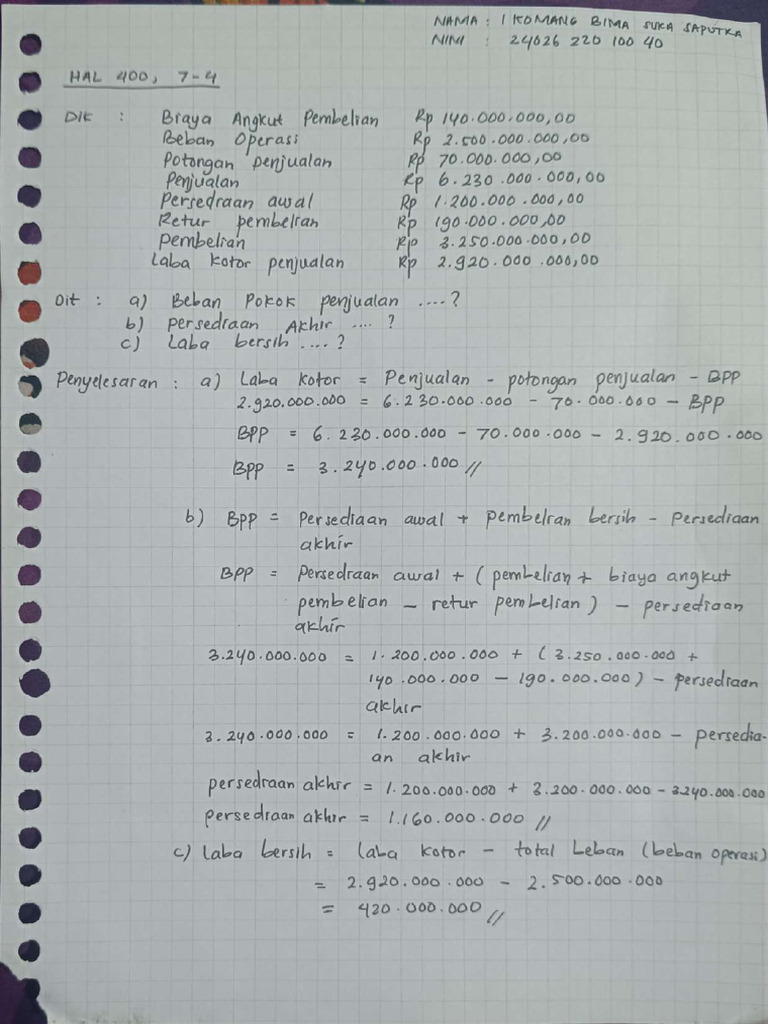 NAMA : I KOMANG BIMA SUKA SAPUTRA
NIM : 24026 220 100 40
HAL 400, 7-4
Dik : Biaya Angkut Pembelian Rp 140.000.000,00
Beban Operasi Rp 2.500.000.000,00
Potongan penjualan Rp 70.000.000,00
Penjualan Rp 6.230.000.000,00
Persediaan awal Rp 1.200.000.000,00
Retur pembelian Rp 190.000.000,00
Pembelian Rp 3.250.000.000,00
Laba Kotor penjualan Rp 2.920.000.000,00
Dit : a) Beban Pokok penjualan ....?
b) persediaan Akhir ....?
c) Laba bersih ....?
Penyelesaian : a) Laba Kotor = Penjualan - potongan penjualan - BPP
2.920.000.000 = 6.230.000.000 - 70.000.000 - BPP
BPP = 6.230.000.000 - 70.000.000 - 2.920.000.000
BPP = 3.240.000.000 //
b) BPP = Persediaan awal + pembelian bersih - Persediaan
akhir
BPP = Persediaan awal + ( pembelian + biaya angkut
pembelian - retur pembelian ) - persediaan
akhir
3.240.000.000 = 1.200.000.000 + ( 3.250.000.000 +
140.000.000 - 190.000.000 ) - persediaan
akhir
3.240.000.000 = 1.200.000.000 + 3.200.000.000 - persedia-
an akhir
persediaan akhir = 1.200.000.000 + 3.200.000.000 - 3.240.000.000
persediaan akhir = 1.160.000.000 //
c) laba bersih = laba kotor - total Leban (beban operasi)
= 2.920.000.000 - 2.500.000.000
= 420.000.000 //